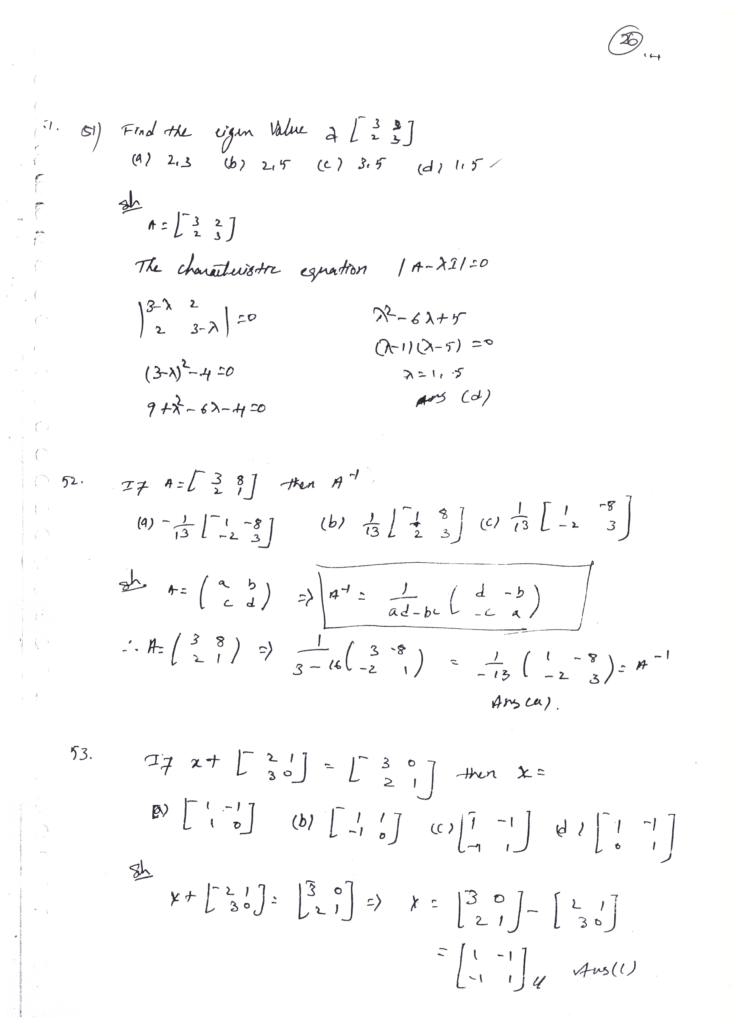 26
51) Find the eigen Value of [3 2; 2 3]
(a) 2,3 (b) 2,5 (c) 3,5 (d) 1,5
A = [3 2; 2 3]
The characteristic equation |A-λI|=0
|3-λ 2; 2 3-λ| = 0
(3-λ)²-4=0
9+λ²-6λ-4=0
λ²-6λ+5
(λ-1)(λ-5)=0
λ=1, 5
Ans (d)
52. If A=[3 8; 2 1] then A⁻¹
(a) -1/13 [1 -8; -2 3] (b) 1/13 [1 8; 2 3] (c) 1/13 [1 -8; -2 3]
A = (a b; c d) ⇒ A⁻¹ = 1/(ad-bc) (d -b; -c a)
∴ A = (3 8; 2 1) ⇒ 1/(3-16) (3 -8; -2 1) = 1/-13 (1 -8; -2 3) = A⁻¹
Ans (a).
53. If x + [2 1; 3 0] = [3 0; 2 1] then x =
(a) [1 -1; 1 0] (b) [1 1; -1 0] (c) [1 -1; -1 1] (d) [1 -1; 0 1]
x + [2 1; 3 0] = [3 0; 2 1] ⇒ x = [3 0; 2 1] - [2 1; 3 0]
= [1 -1; -1 1] Ans (c)